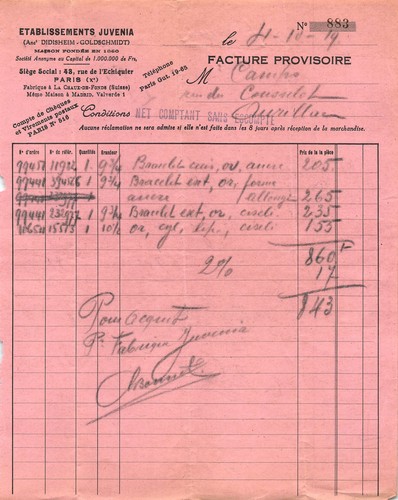 Nº 883
ETABLISSEMENTS JUVENIA
(Anct DIDISHEIM - GOLDSCHMIDT)
MAISON FONDÉE EN 1860
Société Anonyme au Capital de 1.000.000 de Frs.
Siège Social : 48, rue de l'Echiquier
PARIS (Xe)
Fabrique à LA CHAUX-DE-FONDS (Suisse)
Même Maison à MADRID, Valverde 1
Compte de Chèques
et Virements postaux
PARIS Nº 516
Téléphone
Paris Gut. 19-65
le 4-10-19
FACTURE PROVISOIRE
M Camps
rue du Consulat
Aurillac
Conditions NET COMPTANT SANS ESCOMPTE
Aucune réclamation ne sera admise si elle n'est faite dans les 8 jours après réception de la marchandise.
Nº d'ordre Nº de refér. Quantité Grandeur Prix de la pièce
99451 11922 1 9¾ Bracelet cuir, or, ancre 205
99441 1 9¾ Bracelet ext, or, forme
ancre 265
99441 1 9¾ Bracelet ext, or, ciselé 235
1 10½ or, cyl, ciselé 155
860 F
2% 17
843
Pour acquit
Pr Fabrique Juvenia